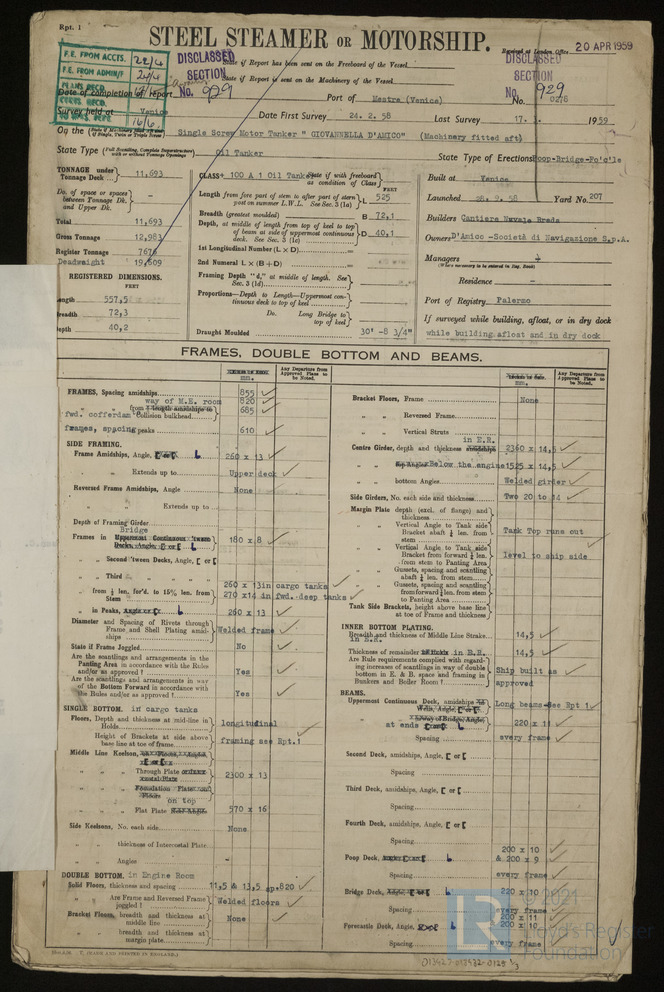 Rpt. 1
STEEL STEAMER OR MOTORSHIP.
Received at London Office 20 APR 1959
F.E. FROM ACCTS. 22/4
F.E. FROM ADMIN/F
DISCLASSED SECTION No. 929
State if Report has been sent on the Freeboard of the Vessel
State if Report is sent on the Machinery of the Vessel
DISCLASSED SECTION 929
Date of completion of report
Port of Mestre (Venice) No. 0276
Survey held at Venice Date First Survey 24. 2. 58 Last Survey 17. 3. 1959
On the Single Screw Motor Tanker " GIOVANNELLA D'AMICO" (Machinery fitted aft)
State Type Oil Tanker State Type of Erections Poop-Bridge-Fo'c'le
TONNAGE under Tonnage Deck 11,693
Do. of space or spaces between Tonnage Dk. and Upper Dk. -
Total 11,693
Gross Tonnage 12,983
Register Tonnage 7676
Deadweight 19,609
REGISTERED DIMENSIONS.
FEET
Length 557,5
Breadth 72,3
Depth 40,2
CLASS + 100 A 1 Oil Tanker State if with freeboard as condition of Class
FEET
Length from fore part of stem to after part of stern post on summer L.W.L. See Sec. 3 (1a) L 525
Breadth (greatest moulded) B 72,1
Depth, at middle of length from top of keel to top of beam at side of uppermost continuous deck. See Sec. 3 (1c) D 40,1
1st Longitudinal Number (L × D)
2nd Numeral L × (B + D)
Framing Depth "d," at middle of length. See Sec. 3 (1d)
Proportions—Depth to Length—Uppermost continuous deck to top of keel
Do. Long Bridge to top of keel
Draught Moulded 30' -8 3/4"
Built at Venice
Launched 28. 9. 58 Yard No. 207
Builders Cantiere Navale Breda
Owners D'Amico -Società di Navigazione S.p.A.
Managers
(Where necessary to be entered in Reg. Book)
Residence -
Port of Registry Palermo
If surveyed while building, afloat, or in dry dock
while building, afloat and in dry dock
FRAMES, DOUBLE BOTTOM AND BEAMS.
Any Departure from Approved Plans to be Noted.
Any Departure from Approved Plans to be Noted.
FRAMES, Spacing amidships 855
way of M.E. room 820
from 685
fwd. cofferdam Collision bulkhead
frames, spacing peaks 610
SIDE FRAMING.
Frame Amidships, Angle, L 260 x 13
" " Extends up to Upper deck
Reversed Frame Amidships, Angle None
" " Extends up to
Depth of Framing Girder
Bridge
Frames in Uppermost Continuous 'tween Decks, Angle, [ or [ L 180 x 8
" Second 'tween Decks, Angle, [ or [
" Third " "
260 x 13 in cargo tanks
" from ¼ len. for'd. to 15% len. from Stem 270 x14 in fwd. deep tanks
" in Peaks, L 260 x 13
Diameter and Spacing of Rivets through Frame and Shell Plating amidships Welded frame
State if Frame Joggled No
Are the scantlings and arrangements in the Panting Area in accordance with the Rules and/or as approved ? Yes
Are the scantlings and arrangements in way of the Bottom Forward in accordance with the Rules and/or as approved ? Yes
SINGLE BOTTOM. in cargo tanks
Floors, Depth and thickness at mid-line in Holds longitudinal
Height of Brackets at side above base line at toe of frame framing see Rpt.1
Middle Line Keelson,
" " Through Plate 2300 x 13
on top
" " Flat Plate 570 x 16
Side Keelsons, No. each side None
" " thickness of Intercostal Plate
" " Angles -
DOUBLE BOTTOM. in Engine Room
Solid Floors, thickness and spacing 11,5 & 13,5 sp.820
" Are Frame and Reversed Frame joggled ? Welded floors
Bracket Floors, breadth and thickness at middle line None
" " breadth and thickness at margin plate
Bracket Floors, Frame None
" " Reversed Frame
" " Vertical Struts
in E.R.
Centre Girder, depth and thickness 2360 x 14,5
" " Below the engine 1525 x 14,5
" " bottom Angles Welded girder
Side Girders, No. each side and thickness Two 20 to 14
Margin Plate depth (excl. of flange) and thickness
" Vertical Angle to Tank side Bracket abaft ¼ len. from stem Tank Top runs out
" Vertical Angle to Tank side Bracket from forward ¼ len. from stem to Panting Area level to ship side
" Gussets, spacing and scantling abaft ¼ len. from stem
" Gussets, spacing and scantling forward ¼ len. from stem to Panting Area
Tank Side Brackets, height above base line at toe of Frame and thickness
INNER BOTTOM PLATING.
Breadth and thickness of Middle Line Strake 14,5
in E.R.
Thickness of remainder in E.R. 14,5
Are Rule requirements complied with regarding increases of scantlings in way of double bottom in E. & B. space and framing in Bunkers and Boiler Room ? Ship built as approved
BEAMS.
Uppermost Continuous Deck, amidships Long beams-See Rpt 1
at ends L 220 x 11
Spacing every frame
Second Deck, amidships, Angle, [ or [
Spacing
Third Deck, amidships, Angle, [ or [
Spacing
Fourth Deck, amidships, Angle, [ or [
Spacing
Poop Deck, L 200 x 10 & 200 x 9
Spacing every frame
Bridge Deck, L 220 x 10
Spacing every frame
Forecastle Deck, Angle, L 200 x 11 200 x 10
Spacing every frame
(MADE AND PRINTED IN ENGLAND.)
013927-013932-0128 1/3
© 2021
Lloyd's Register
Foundation
LR